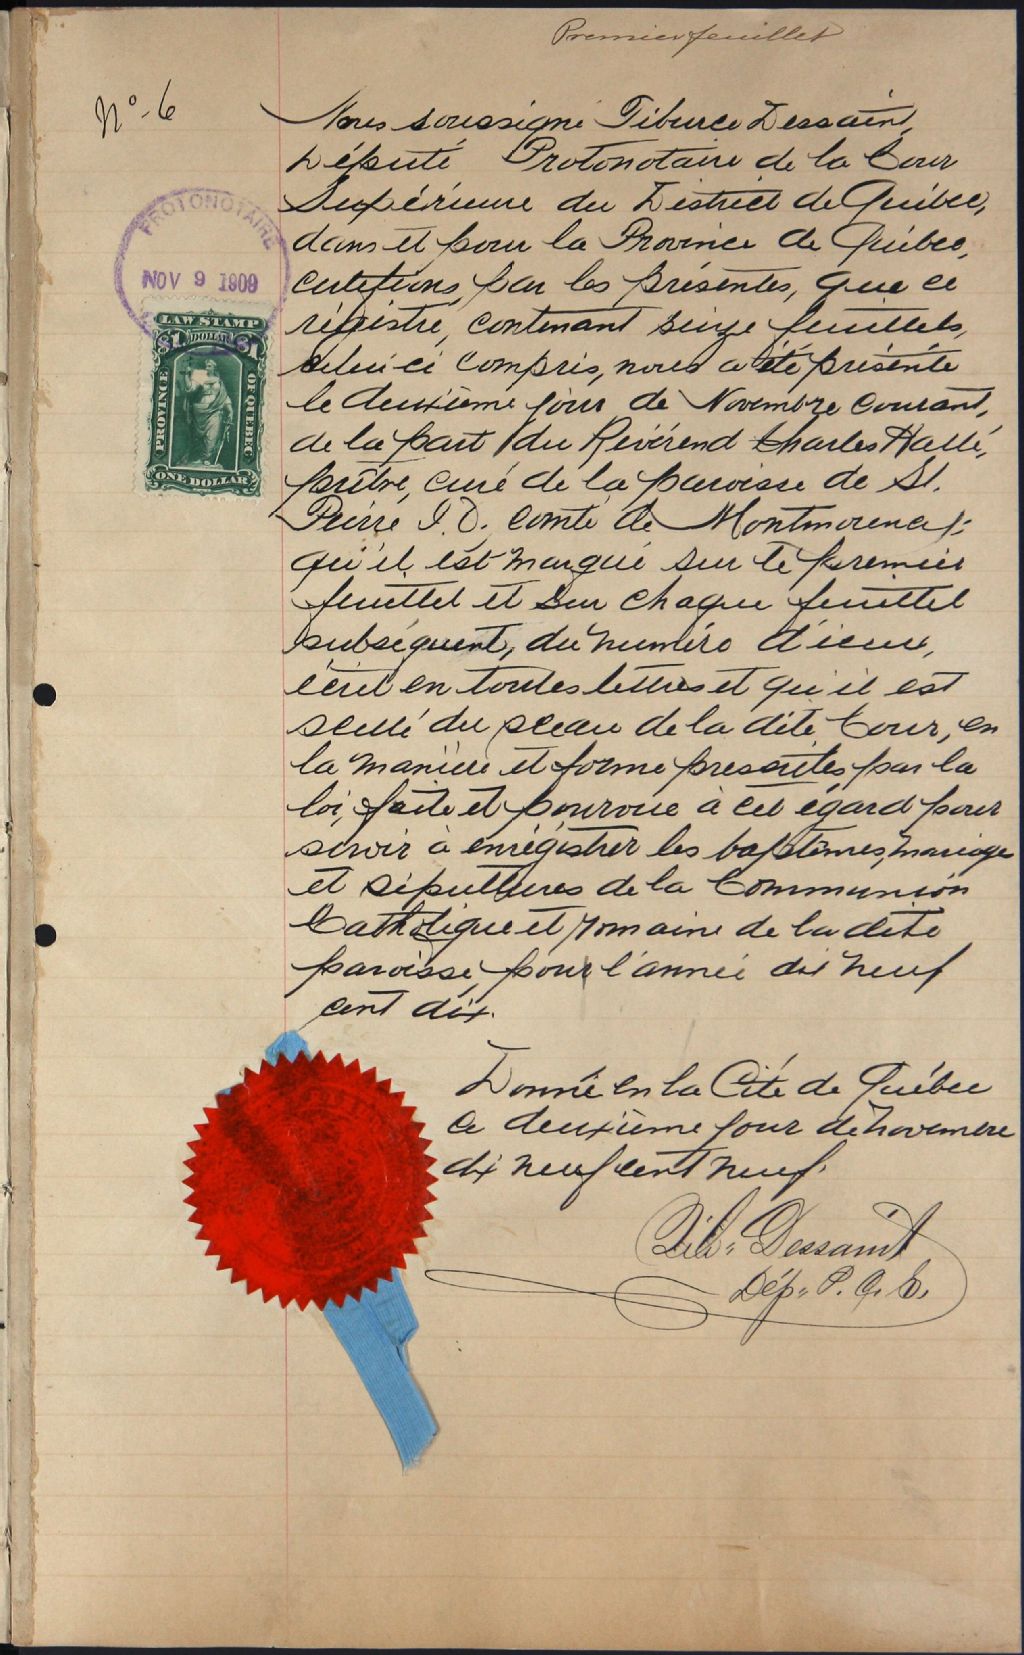 Premier feuillet
No. 6
Nous soussigné Tiburce Dessaint,
Député Protonotaire de la Cour
Supérieure du District de Québec,
dans et pour la Province de Québec,
certifions par les présentes, que ce
régistre, contenant seize feuillets,
celui ci compris, nous a été présenté
le deuxième jour de Novembre courant,
de la part du Révérend Charles Hallé,
prêtre, curé de la paroisse de St.
Pierre I. O. comté de Montmorency:
qu'il est marqué sur le premier
feuillet et sur chaque feuillet
subséquent, du numéro d'iceux,
écrit en toutes lettres et qu'il est
scellé du sceau de la dite Cour, en
la manière et forme prescrites par la
loi, faite et pourvue à cet égard pour
servir à enrégistrer les baptêmes, mariages
et sépultures de la Communion
Catholique et romaine de la dite
paroisse, pour l'année dix neuf
cent dix.
Donné en la Cité de Québec
ce deuxième jour de novembre
dix neuf cent neuf.
Tib. Dessaint
Dép. P. C. S.
PROTONOTAIRE
NOV 9 1909
LAW STAMP
$1 DOLLAR $1
PROVINCE
OF QUEBEC
ONE DOLLAR